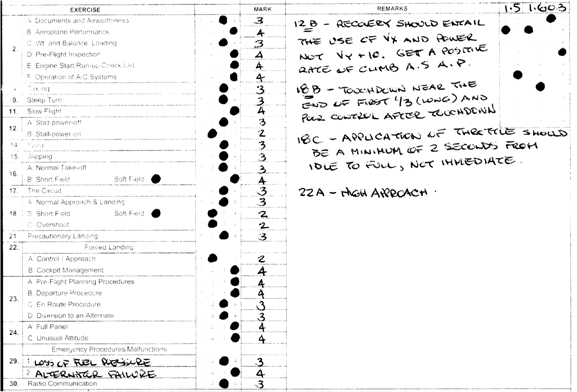 EXERCISE MARK REMARKS 1.5 1.6 0.3
2. A Documents and Airworthiness 3
B Aeroplane Performance 4
C Wt. and Balance, Loading 3
D Pre-Flight Inspection 4
E Engine Start Run-up Check List 4
F Operation of A/C Systems 4
Taxiing 3
9. Steep Turn 3
11. Slow Flight 4
12. A Stall-power-off 3
B Stall-power-on 2
3
15. Slipping 3
16. A Normal Take-off 3
B Short Field Soft Field 4
17. The Circuit 3
18 A Normal Approach & Landing 3
B Short Field Soft Field 2
C Overshoot 2
21. Precautionary Landing 3
22. Forced Landing
A Control / Approach 2
B Cockpit Management 4
23. A Pre-Flight Planning Procedures 4
B Departure Procedure 4
C En Route Procedure 3
D Diversion to an Alternate 3
24. A Full Panel 4
C Unusual Attitude 4
Emergency Procedures/Malfunctions
29. 1 LOSS OF FUEL PRESSURE 3
2 ALTERNATOR FAILURE 4
30. Radio Communication 3
12 B - RECOVERY SHOULD ENTAIL
THE USE OF VX AND POWER
NOT VY +10. GET A POSITIVE
RATE OF CLIMB A.S.A.P.
18 B - TOUCHDOWN NEAR THE
END OF FIRST 1/3 (LONG) AND
POOR CONTROL AFTER TOUCHDOWN
18C - APPLICATION OF THROTTLE SHOULD
BE A MINIMUM OF 2 SECONDS FROM
IDLE TO FULL, NOT IMMEDIATE.
22A - HIGH APPROACH.